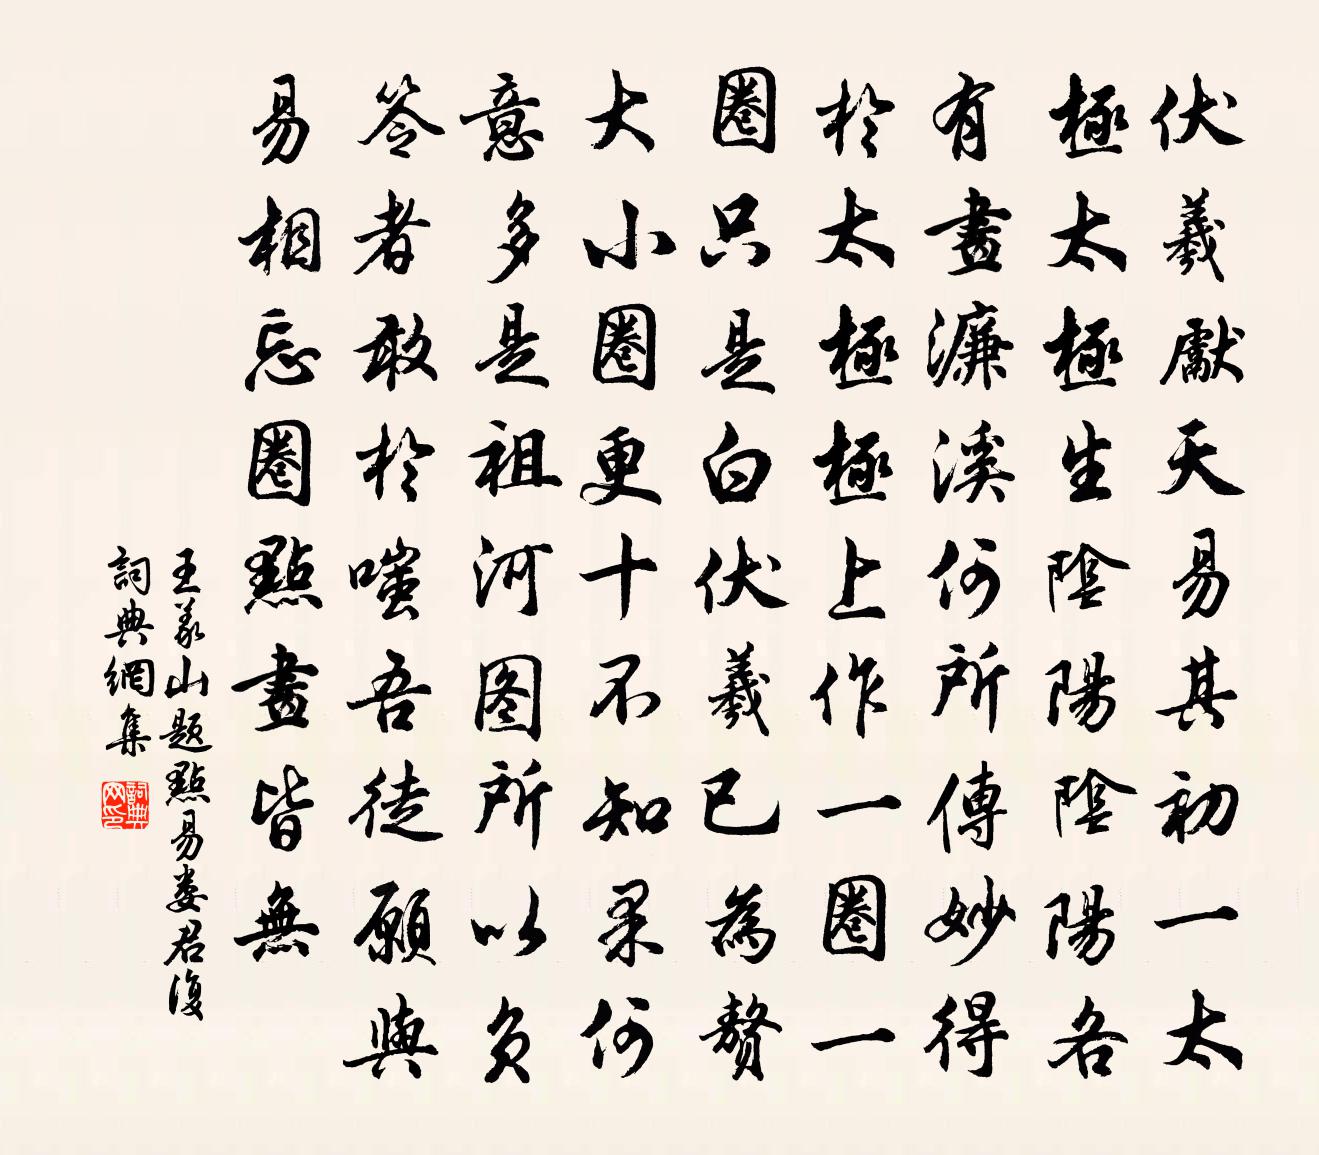 伏羲獻天易其初一太
極太極生陰陽陰陽各
有畫濂溪何所傳妙得
於太極極上作一圈一
圈只是白伏羲已為贅
大小圈更十不知果何
意多是祖河图所以负
答者敢於嗤吾徒願與
易相忘圈點畫皆無
王義山题點易婁君復
詞典網集
詞典网印